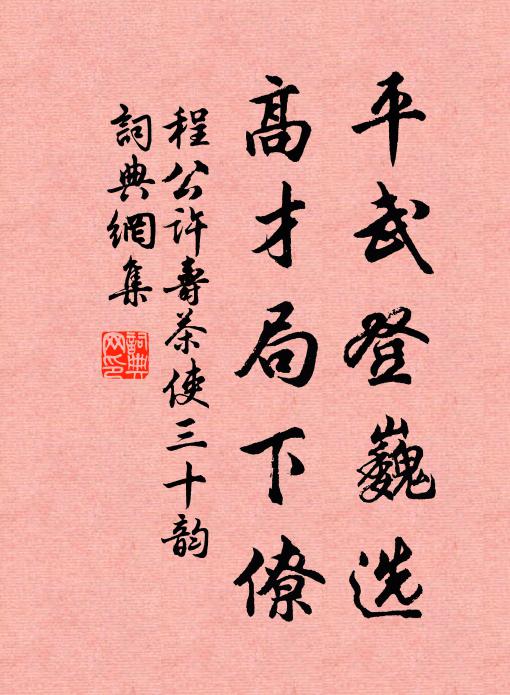 平武登巍选
高才局下僚
程公许寿茶使三十韵
词典網集
詞典
网印